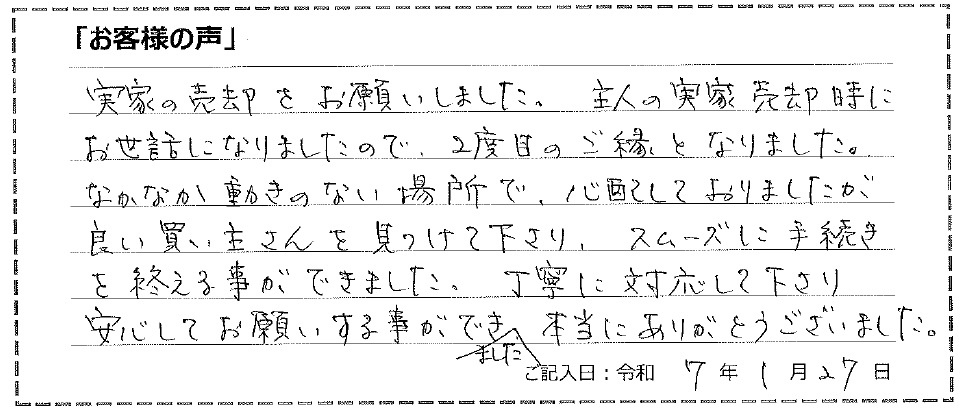 「お客様の声」
実家の売却をお願いしました。 主人の実家売却時に
お世話になりましたので、2度目のご縁となりました。
なかなか動きのない場所で、心配しておりましたが
良い買い主さんを見つけて下さり、スムーズに手続き
を終える事ができました。丁寧に対応して下さり
安心してお願いする事ができ、本当にありがとうございました。
ました
ご記入日：令和 7年 1月27日